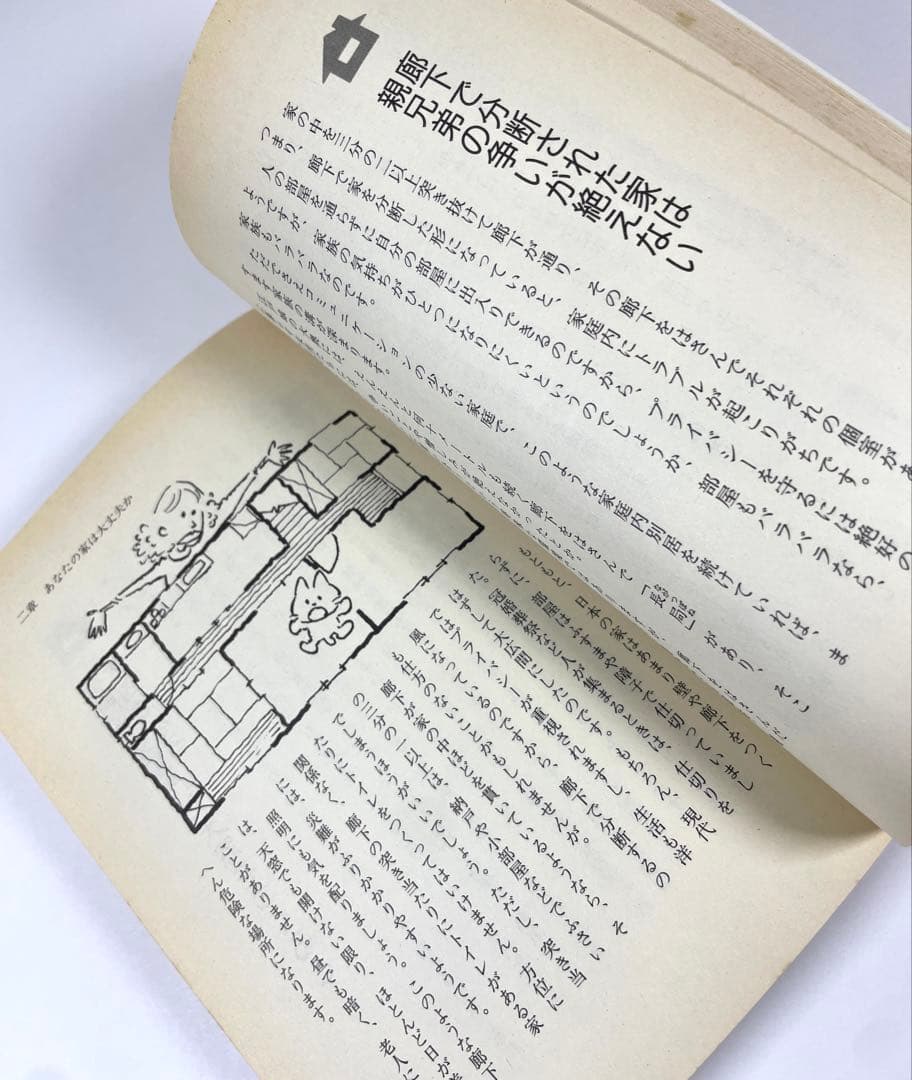 廊下で分断された家は
親兄弟の争いが絶えない
家の中を三分の二以上突き抜けて廊下が通り、その廊下をはさんでそれぞれの個室があ
つまり、廊下で家を分断した形になっていると、家庭内にトラブルが起こりがちです。
人の部屋を通らずに自分の部屋に出入りできるのですから、プライバシーを守るには絶好の
ようですが、家族の気持ちがひとつになりにくいというのでしょうか、部屋もバラバラなら、
家族もバラバラなのです。
ただでさえコミュニケーションの少ない家庭で、このような家庭内別居を続けていれば、ま
すます家族の溝が深まります。
何十メートルも続く廊下をはさんで「長局」があり、そこ
もともと、日本の家はあまり壁や廊下をつく
らずに、部屋はふすまや障子で仕切っていまし
た。冠婚葬祭など人が集まるときは、仕切りを
はずして大広間にしたのです。もちろん、現代
ではプライバシーが重視されますし、生活も洋
風になっているのですから、廊下で分断するの
も仕方のないことかもしれませんが。
廊下が家の中ほどを貫いているようなら、そ
の三分の一以上は、納戸や小部屋などでふさい
でしまうほうがいいでしょう。ただし、突き当
たりにトイレをつくってはいけません。方位に
関係なく、廊下の突き当たりにトイレがある家
には、炎難がふりかかりやすいようです。
照明にも気を配りましょう。このような廊下
は、天窓でも開けない限り、ほとんど日が
ことがありません。昼でも暗く、老人に
へん危険な場所になります。
二章 あなたの家は大丈夫か